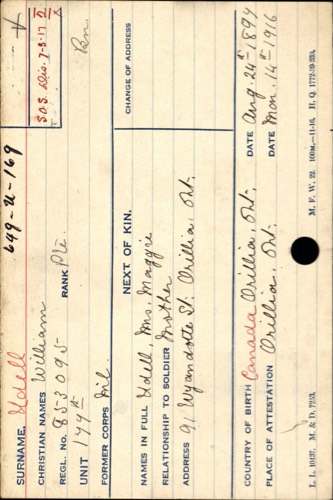 649-U-169
SURNAME. Udell
CHRISTIAN NAMES William
REGL. No. 853095 RANK Pte.
S.O.S. Dis. 7-8-17
UNIT 177th
FORMER CORPS Nil.
NEXT OF KIN.
NAMES IN FULL Udell, Mrs. Maggie
RELATIONSHIP TO SOLDIER Mother
ADDRESS 91 Wyandotte St. Orillia, Ont.
CHANGE OF ADDRESS
COUNTRY OF BIRTH Canada Orillia, Ont. DATE Aug. 24th 1897
PLACE OF ATTESTATION Orillia, Ont. DATE 14th 1916
L. L. 10137. M. & D. 7253. M. F. W. 22. 100M.—11-16. H. Q. 1772-39-339.